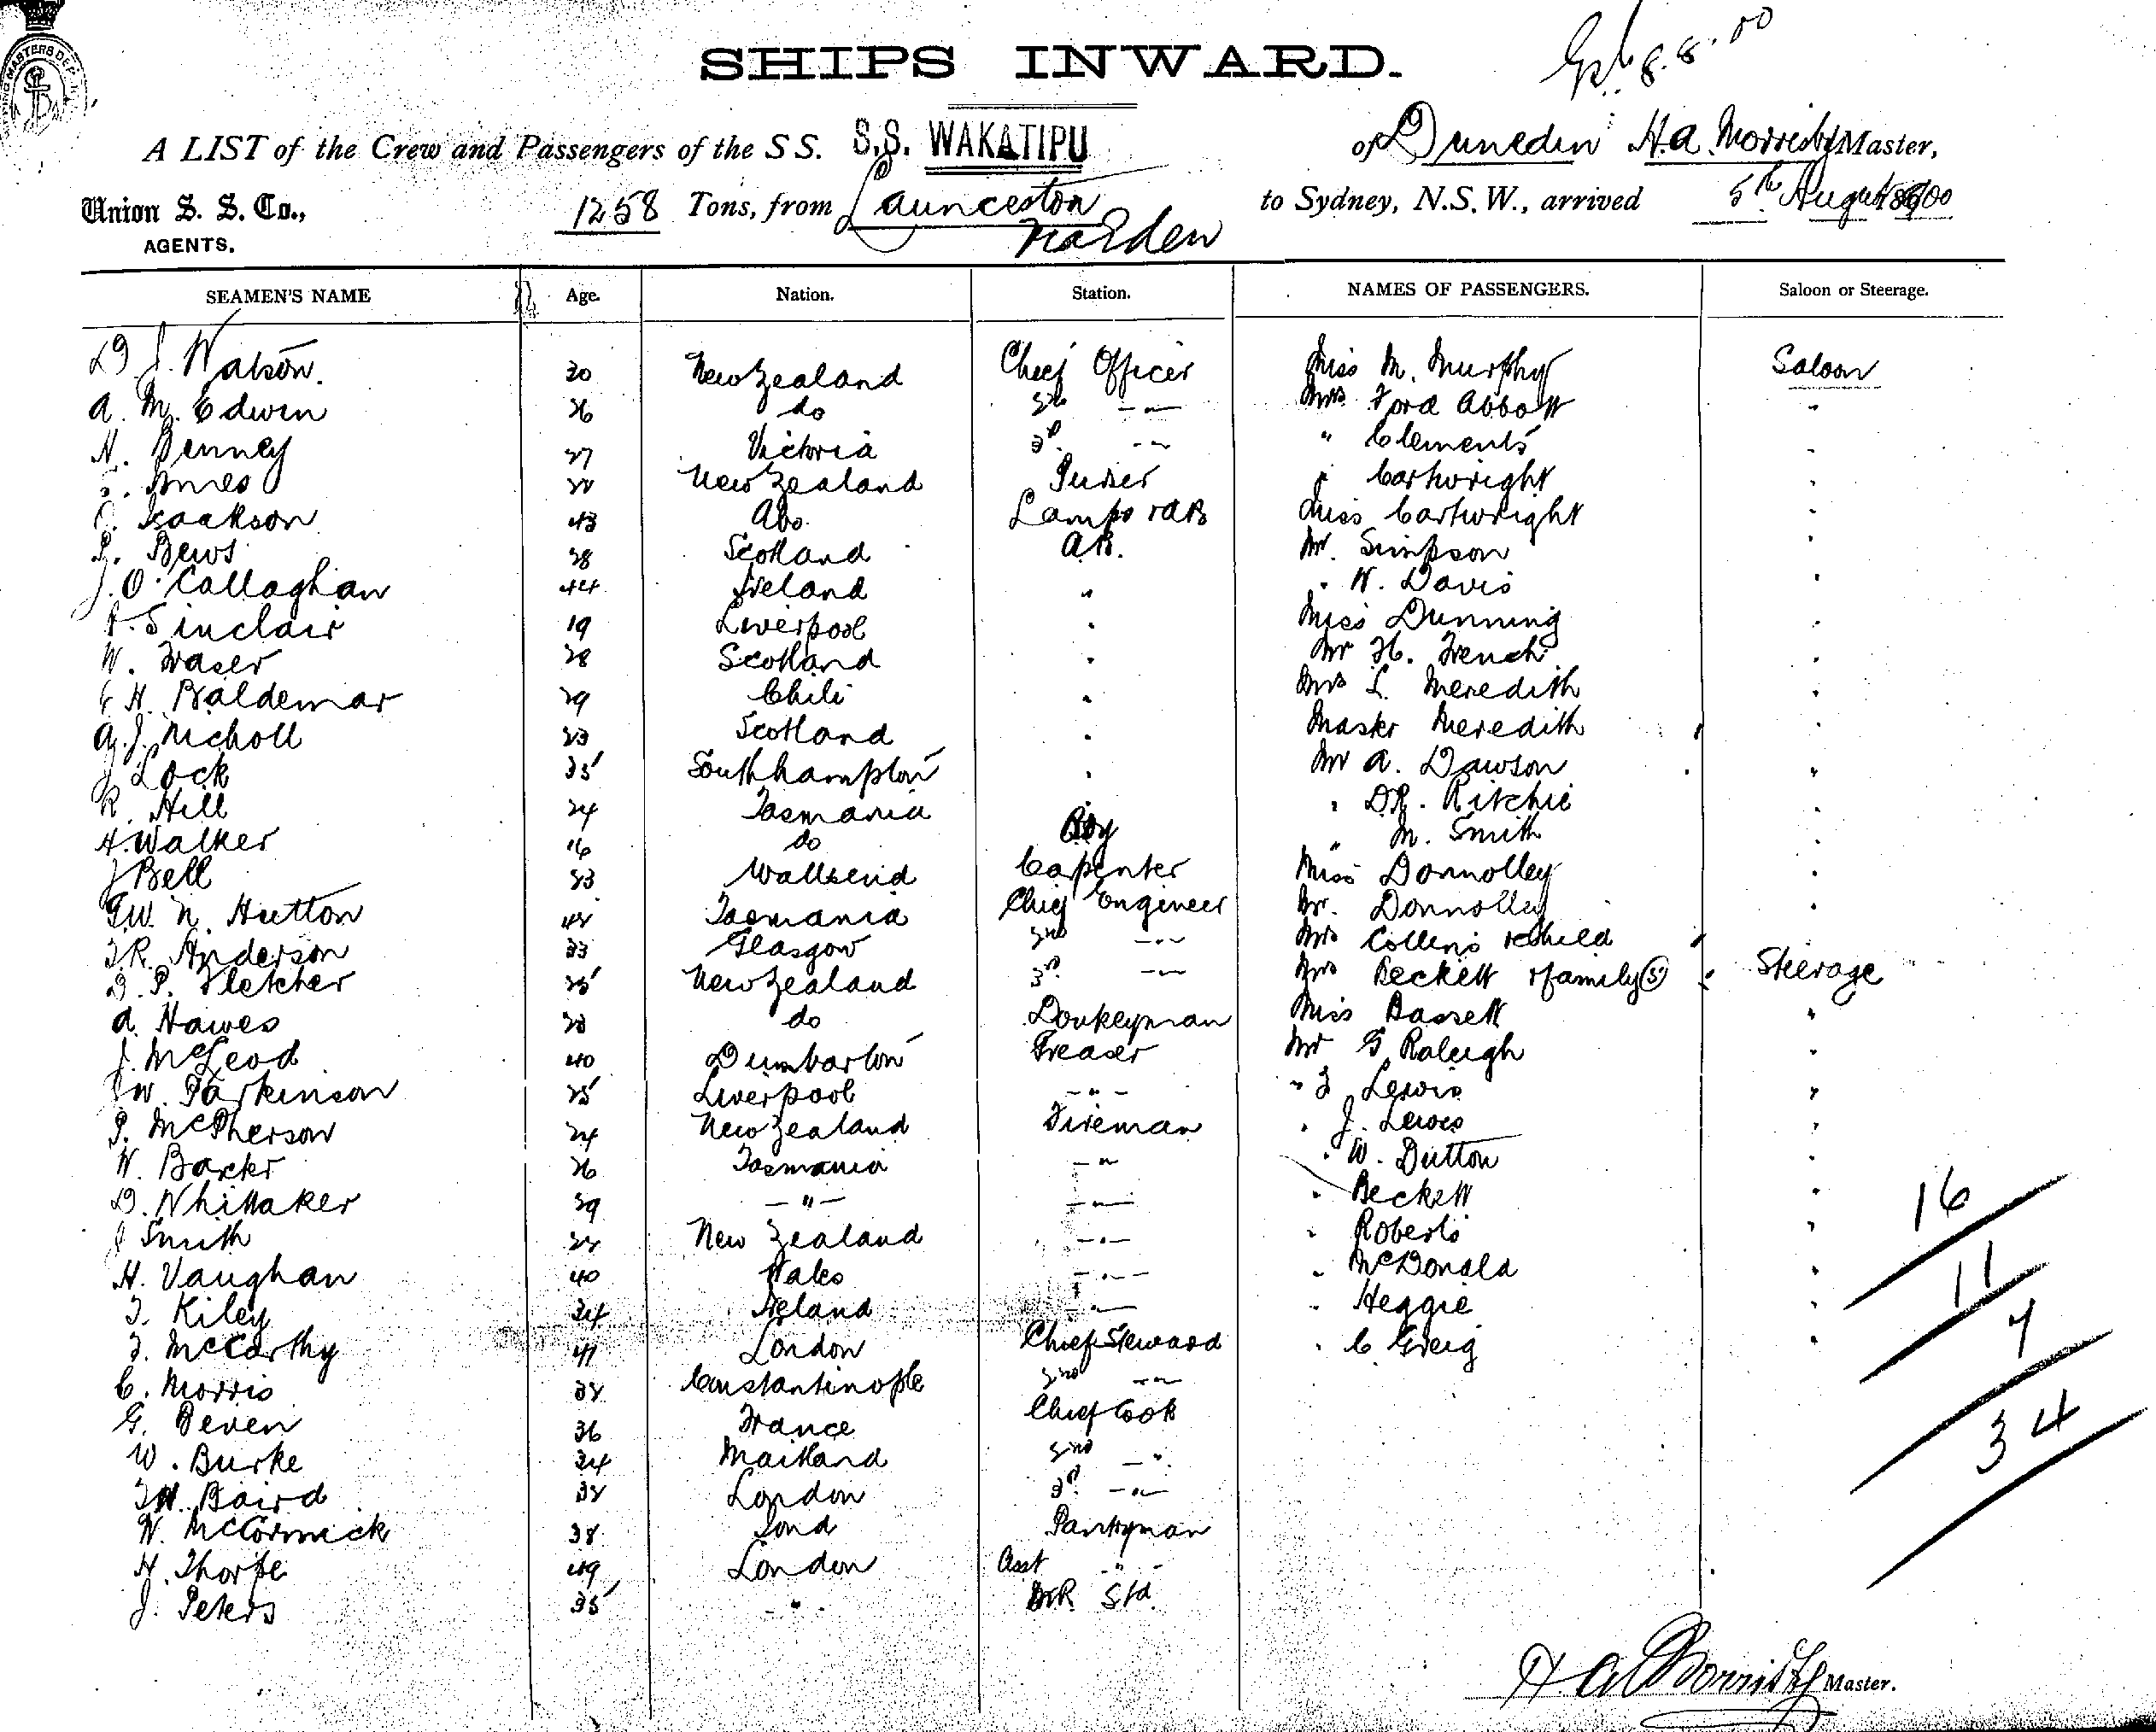 SHIPS INWARD.
8.8.00
A LIST of the Crew and Passengers of the SS. S.S. WAKATIPU of Dunedin H.A. Morrisby Master,
Union S. S. Co., 1258 Tons, from Launceston to Sydney, N.S.W., arrived 5th August 1900
AGENTS.
SEAMEN'S NAME Age. Nation. Station. NAMES OF PASSENGERS. Saloon or Steerage.
D. J. Watson. 30 New Zealand Chief Officer Miss M. Murphy Saloon
A. M. Edwin 26 do 2nd -"- Mrs Ford Abbott "
N. Denney 27 Victoria 3rd. -"- " Clements "
Innes New Zealand Purser " Cartwright "
Isaakson 43 Abo. Lamps & AB Miss Cartwright "
P. Bews 28 Scotland AB. Mr. Simpson "
J. O'Callaghan 44 Ireland " " W. Davis "
Sinclair 19 Liverpool " Miss Dunning "
W. Fraser 28 Scotland " Mr H. French "
H. Baldemar 29 Chili " Mrs L. Meredith "
A. J. Nicholl 23 Scotland " Master Meredith "
J Lock 35 Southhampton " Mr A. Dawson "
R. Hill 24 Tasmania " D.R. Ritchie "
A. Walker 16 do Boy " M. Smith "
J Bell 23 Wallsend Carpenter Miss Donnolley "
G.W. N. Hutton Tasmania Chief Engineer Mr. Donnolley "
J.R. Anderson 33 Glasgow 2nd -"- Mrs Collins & child "
D. P. Fletcher 25 New Zealand 3rd. -"- Mrs Beckett & family (5) Steerage
A. Hawes 28 do Donkeyman Miss Bassett "
J. McLeod 40 Dumbarton Greaser Mr G Raleigh "
W. Parkinson 25 Liverpool -"- " J Lewis "
P. McPherson 24 New Zealand Fireman " J. Lewis "
W. Baxter 26 Tasmania -"- " W. Dutton "
D. Whittaker 29 -"- -"- " Beckett "
J Smith New Zealand -"- " Roberts "
H. Vaughan 40 Wales -"- " McDonald "
J. Kiley 34 Ireland -"- " Heggie "
J. McCarthy 41 London Chief Steward " C. Greig "
C. Morris 38 Constantinople 2nd -"-
G. Beven 36 France Chief Cook
W. Burke 24 Maitland 2nd -"-
Baird 38 London 3rd -"-
W. McCormick 38 Lond Pantryman
H. Thorpe 49 London Asst -"-
J. Peters 35 -"- Std.
16
11
7
34
H A Morrisby Master.